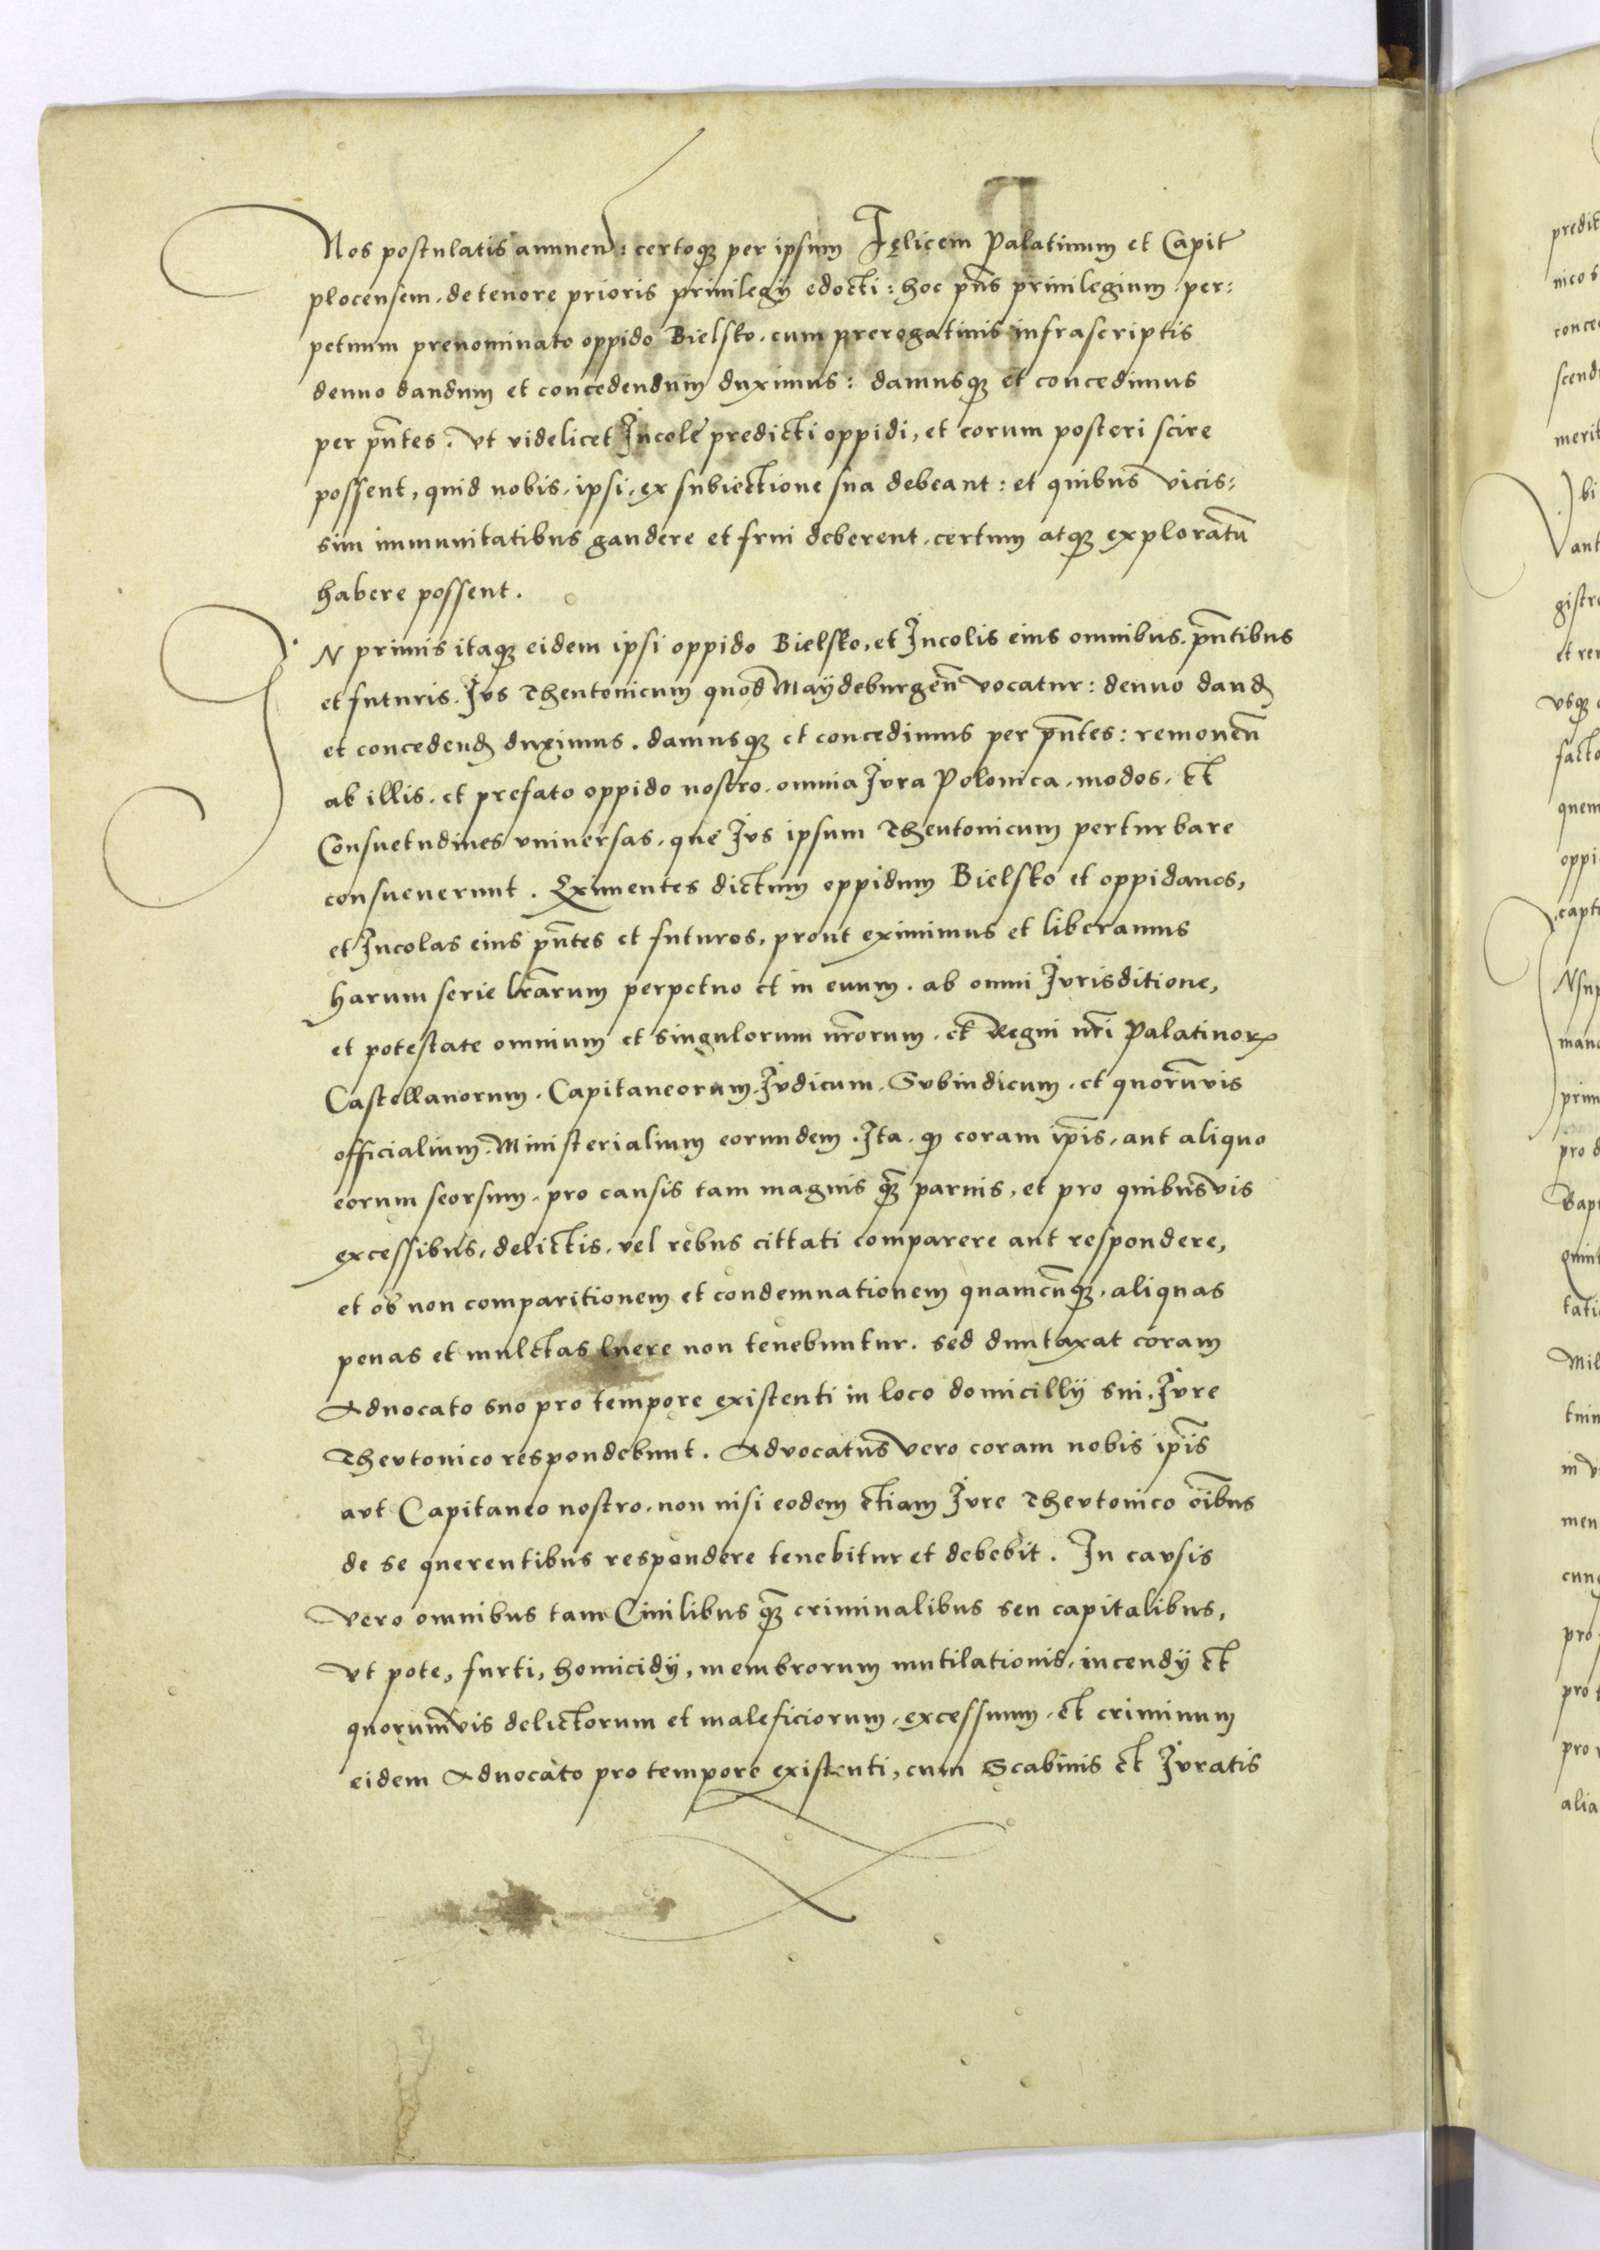 Nos postulatis annuen̄: certoq₃ per ipsum Felicem Palatinum et Capit̄
plocensem. de tenore prioris priuilegij edocti: hoc pn̄s priuilegium per:
petuum prenominato oppido Bielsko. cum prerogatiuis infrascriptis
denuo dandum et concedendum duximus: damusq₃ et concedimus
per pn̄tes. Vt videlicet Incolę predicti oppidi, et eorum posteri scire
possent, quid nobis. ipsi, ex subiectione sua debeant: et quibus vicis:
sim immunitatibus gaudere et frui deberent. certum atq₃ exploratū
habere possent.
IN primis itaq₃ eidem ipsi oppido Bielsko, et Incolis eius omnibus. pn̄tibus
et futuris. Ius Theutonicum quod Maÿdeburgen̄ vocatur: denuo dand̄
et concedend̄ duximus. damusq₃ et concedimus per pn̄tes: remouen̄
ab illis. et prefato oppido nostro. omnia Iura Polonica. modos. et
Consuetudines vniuersas. que Ius ipsum Theutonicum perturbare
consueuerunt. Eximentes dictum oppidum Bielsko et oppidanos,
et Incolas eius pn̄tes et futuros, prout eximimus et liberamus
harum serie lr̄arum perpetuo et in euum. ab omni Iurisditione,
et potestate omnium et singulorum nr̄orum. et Regni nr̄i Palatinorꝝ
Castellanorum. Capitaneorum. Iudicum. Subiudicum. et quorūuis
officialium. Ministerialium eorundem. Ita. q̄ coram ip̄is, aut aliquo
eorum seorsum. pro causis tam magnis q̄₃ paruis, et pro quibusvis
excessibus, delictis. vel rebus cittati comparere aut respondere,
et ob non comparitionem et condemnationem quamcūq₃. aliquas
penas et mulctas luere non tenebuntur. sed duntaxat coram
Aduocato suo pro tempore existenti in loco domicillij sui. Iure
Theutonico respondebunt. Advocatus vero coram nobis ip̄is
aut Capitaneo nostro. non nisi eodem etiam Iure Theutonico oībus
de se querentibus respondere tenebitur et debebit. In causis
vero omnibus tam Ciuilibus q̄₃ criminalibus seu capitalibus,
vt pote, furti, homicidij, membrorum mutilationis. incendij et
quorumvis delictorum et maleficiorum, excessuum. et criminum
eidem Aduocato pro tempore existenti, cum Scabinis et Iuratis